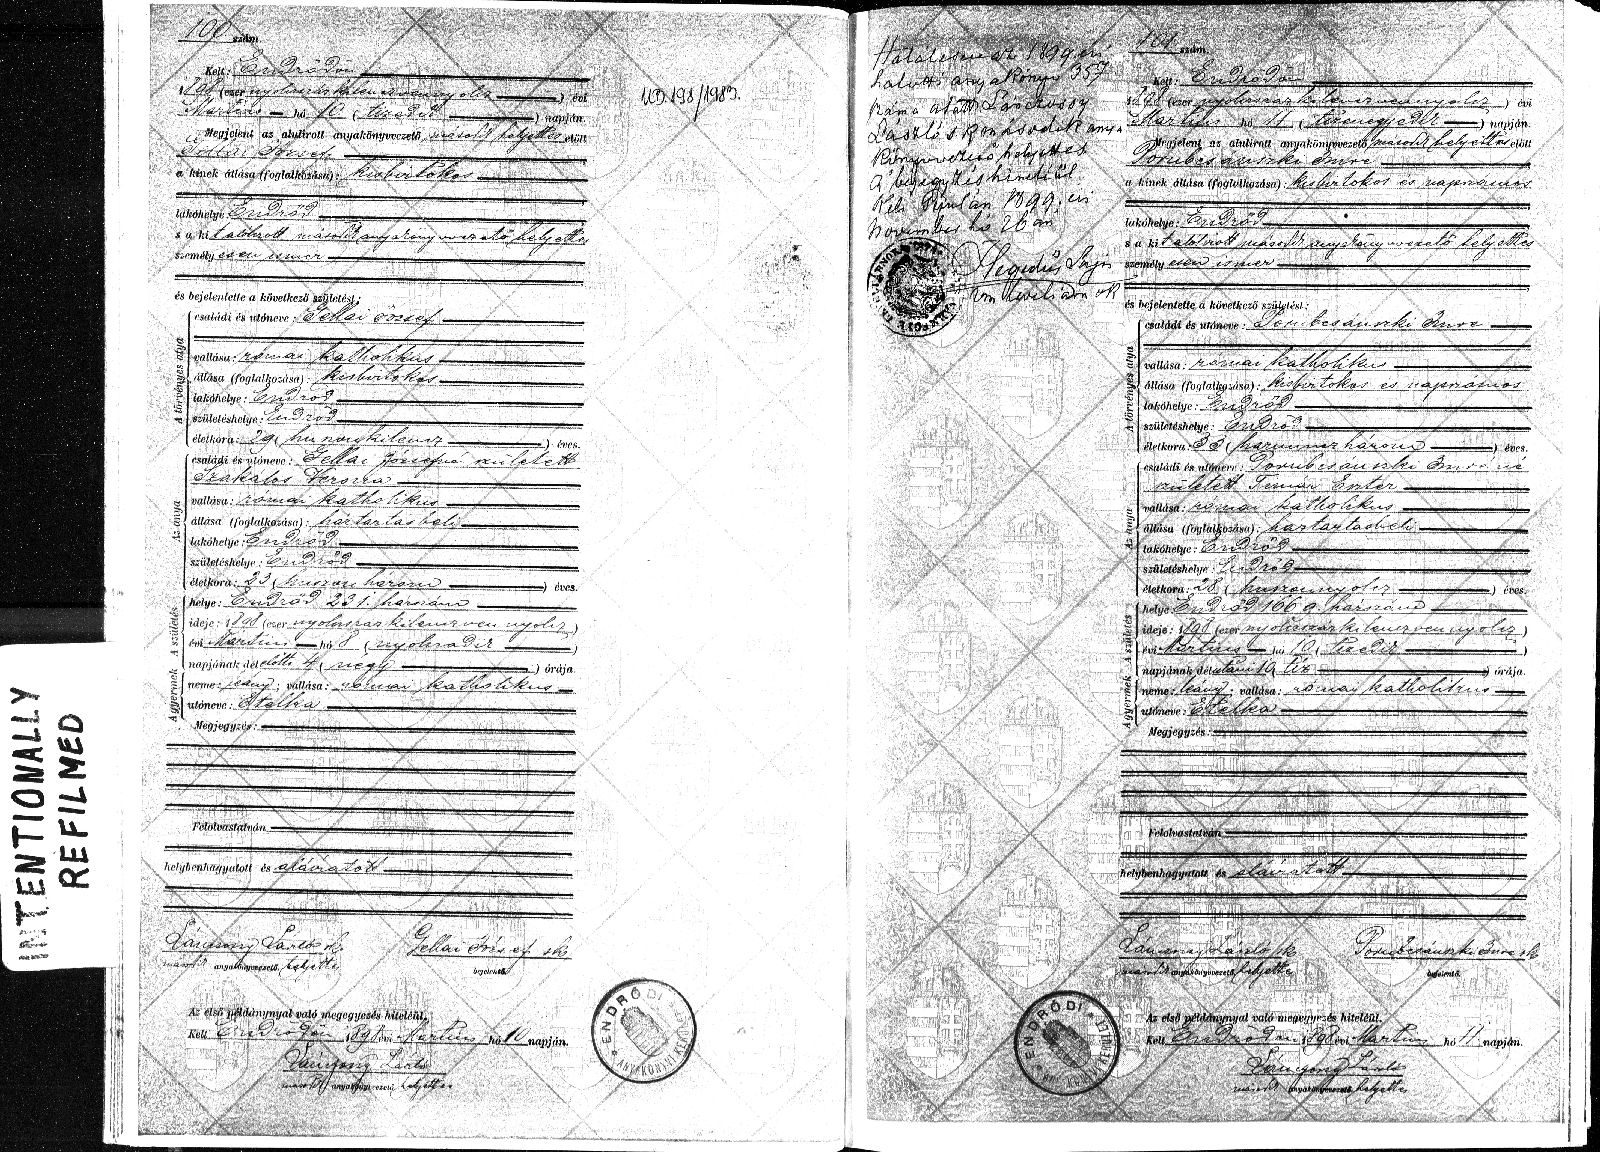 INTENTIONALLY
REFILMED
100 szám.
Kelt: Endrődön
1898 (ezer nyolczszázkilenczvennyolcz) évi
Martius hó 10 (tizedik) napján.
Megjelent az alulirott anyakönyvvezető másodh helyettes előtt
Gellai József
a kinek állása (foglalkozása): kisbirtokos
lakóhelye Endrőd
s a kit alólirott másodh anyakönyvvezető helyettes
személyesen ismer
és bejelentette a következő születést:
A törvényes atya
családi és utóneve: Gellai József
vallása: római katholikus
állása (foglalkozása): kisbirtokos
lakóhelye: Endrőd
születéshelye: Endrőd
életkora: 29 (huszonkilencz) éves.
Az anya
családi és utóneve: Gellai Józsefné született
Szakálos Verona
vallása: római katholikus
állása (foglalkozása): háztartásbeli
lakóhelye: Endrőd
születéshelye: Endrőd
életkora: 23 (huszonhárom) éves.
A születés
helye: Endrőd 231. házszám
ideje: 1898 (ezer nyolczszázkilenczvennyolcz)
évi Martius hó 8 (nyolczadik)
napjának délelőtti 4 (négy) órája.
A gyermek
neme: leány; vallása: római katholikus
utóneve: Etelka
Megjegyzés:
Felolvastatván
helybenhagyatott és aláiratott
másodh anyakönyvvezető helyettes
Gellai József sk
bejelentő.
Az első példánynyal való megegyezés hiteléül.
Kelt Endrődön 1898 évi Martius hó 10 napján.
másodh anyakönyvvezető helyettes
ENDRŐDI ANYAKÖNYVI KERÜLET
UD 198/1983.
Halálesem az 1899 évi
halotti anyakönyv 357
szám alatt
László sk másodh anya
könyvvezető helyettes
A bejegyzés hiteléül
Kelt Gyulán 1899. évi
november hó 26 án
Hegedüs
vm levéltárnok
101 szám.
Kelt: Endrődön
1898 (ezer nyolczszázkilenczvennyolcz) évi
Martius hó 11 (tizenegyedik) napján.
Megjelent az alulirott anyakönyvvezető másodh helyettes előtt
Porubcsánszki Imre
a kinek állása (foglalkozása): kisbirtokos és napszámos
lakóhelye: Endrőd
s a kit alólirott másodh anyakönyvvezető helyettes
személyesen ismer
és bejelentette a következő születést:
A törvényes atya
családi és utóneve: Porubcsánszki Imre
vallása: római katholikus
állása (foglalkozása): kisbirtokos és napszámos
lakóhelye: Endrőd
születéshelye: Endrőd
életkora: 33 (harminczhárom) éves.
Az anya
családi és utóneve: Porubcsánszki Imréné
született Timár Eszter
vallása: római katholikus
állása (foglalkozása): háztartásbeli
lakóhelye: Endrőd
születéshelye: Endrőd
életkora: 28 (huszonnyolcz) éves.
A születés
helye: Endrőd 1669. házszám
ideje: 1898 (ezer nyolczszázkilenczvennyolcz)
évi Martius hó 10 (tizedik)
napjának délutáni 10 tiz órája.
A gyermek
neme: leány; vallása: római katholikus
utóneve: Etelka
Megjegyzés:
Felolvastatván
helybenhagyatott és aláiratott
másodh anyakönyvvezető helyettes
Porubcsánszki Imre sk
bejelentő.
Az első példánynyal való megegyezés hiteléül.
Kelt Endrődön 1898 évi Martius hó 11 napján.
másodh anyakönyvvezető helyettes
ENDRŐDI ANYAKÖNYVI KERÜLET